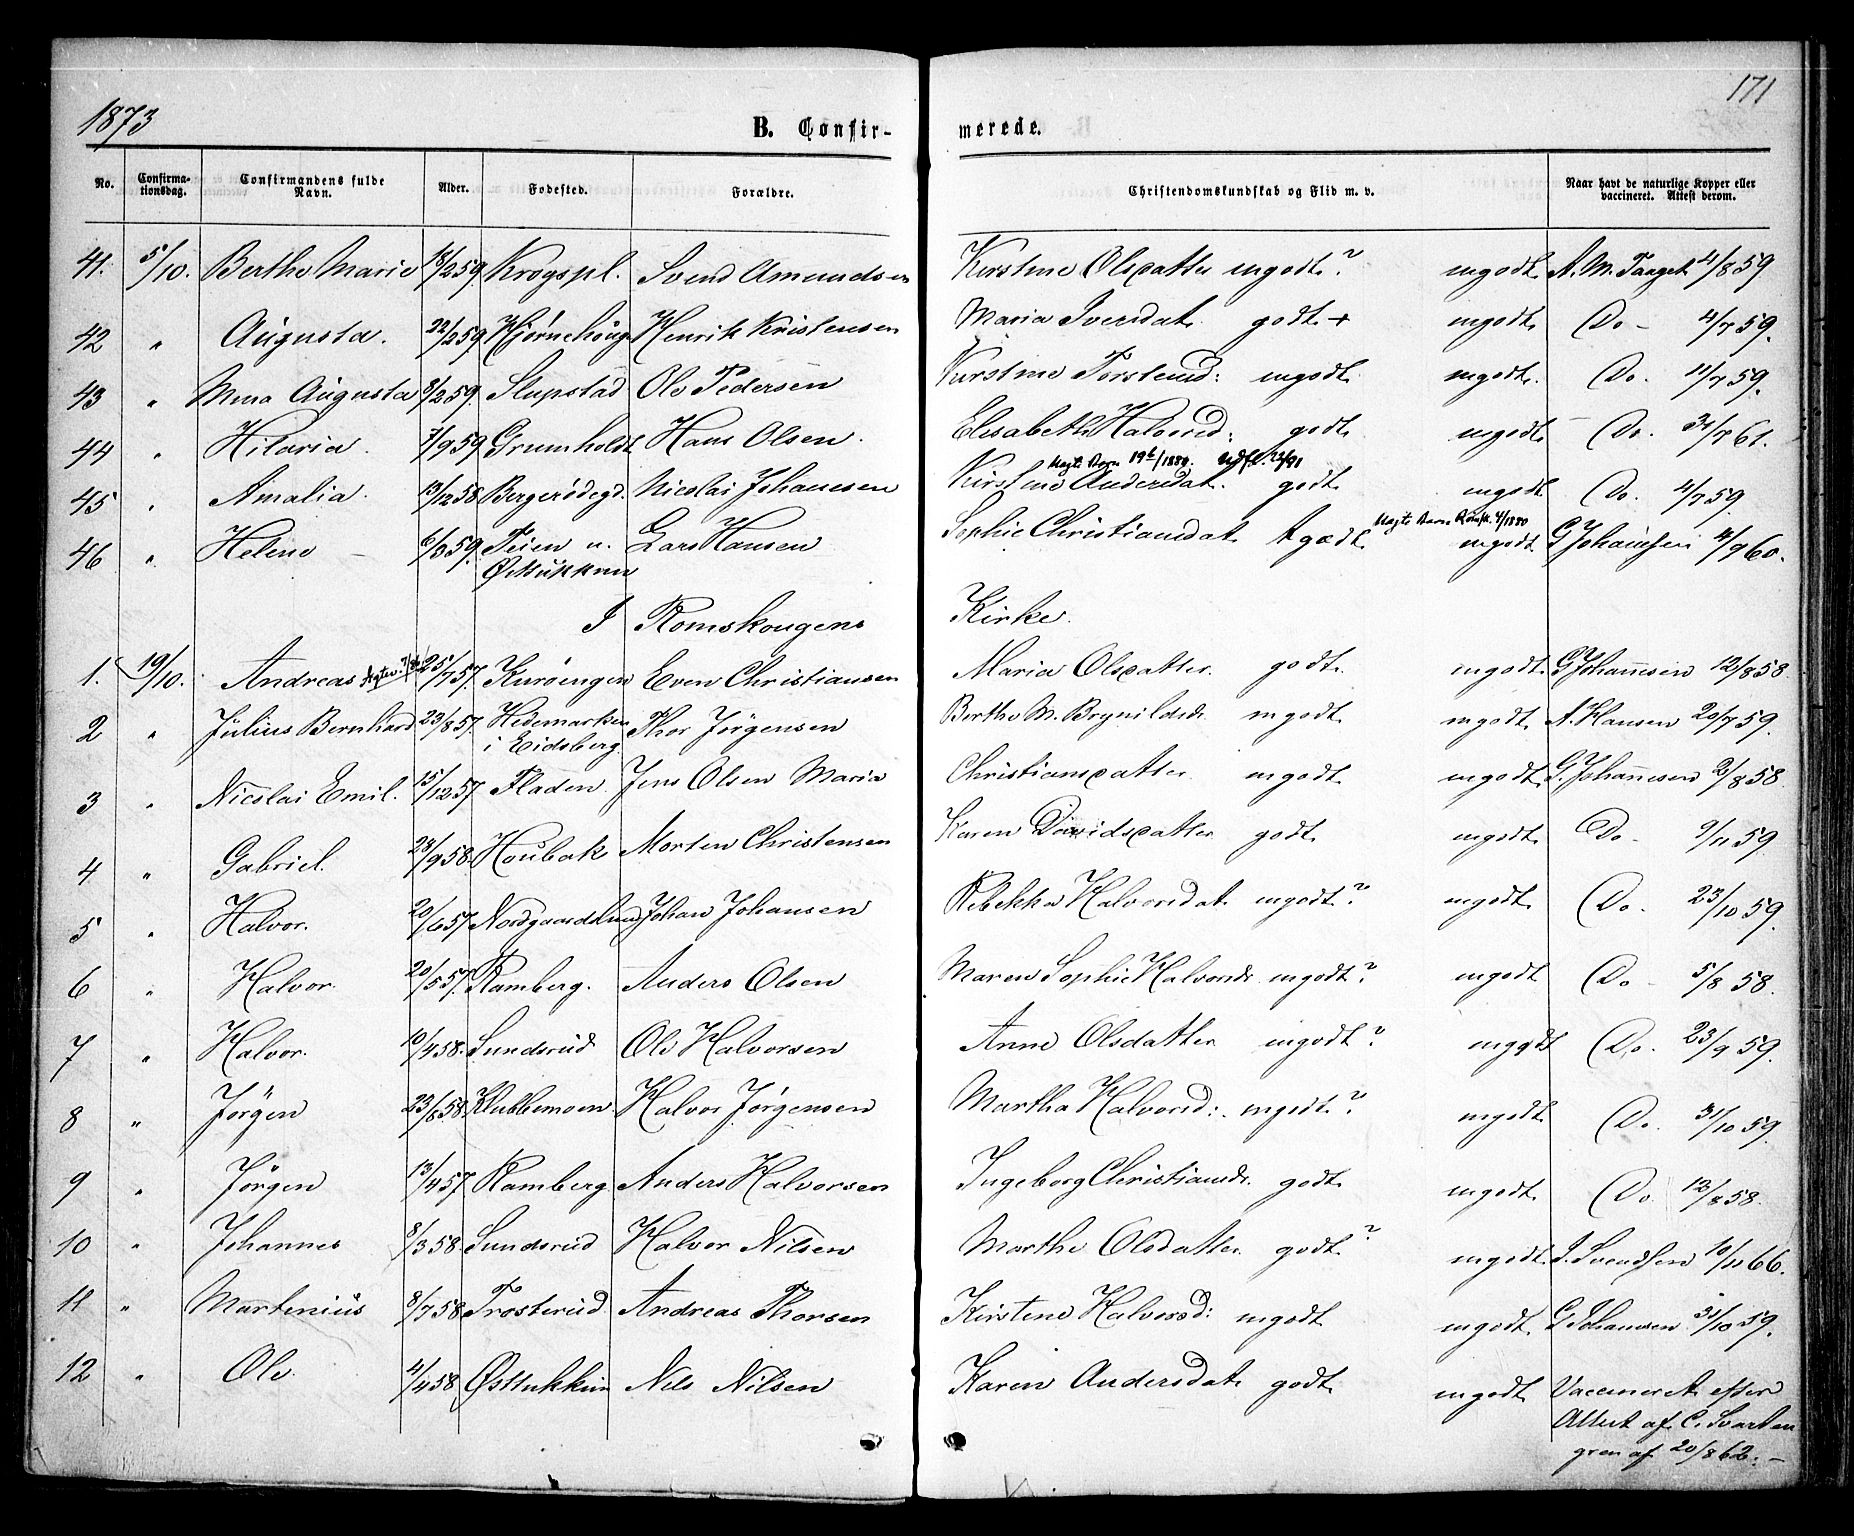 1873
171
B. Confir-
merede.
No. Confirma-tionsdag. Confirmandens fulde Navn. Alder. Fødested. Forældre. Christendomskundskab og Flid m. v. Naar havt de naturlige Kopper eller vaccineret. Attest derom.
41. 5/10. Berthe Marie 18/2 59 Krogspl. Svend Amundsen Kirstine Olsdatter mgodt? mgodt A. M. Tangen 4/8 59
42 " Augusta. 22/2 59 Henrik Kristensen Maria Iversdat. godt + mgodt Do - 4/7 59.
43 " Mina Augusta 8/2 59. Slupstad Ole Pedersen Kirstine Torstensd: mgodt mgodt. Do. 11/7 59.
44 " Hilaria. 7/9 59 Grumholdt Hans Olsen. Elisabeth Halvorsd: godt mgodt Do. 61.
45 " Amalia. 13/12 58 Bergerødegd. Nicolai Johansen Kirstine Andersdat. godt mgodt Do. 4/7 59.
46 " Helene - 6/3 59. Teien u. Lars Hansen Sophie Christiansdat. godt mgodt G Johansen 4/9 60.
I Romskougens Kirke.
1. 19/10. Andreas 25/7 57. Kurøengen Even Christiansen Maria Olsdatter. godt. mgodt G Johannesen 12/8 58
2 " Julius Bernhard 23/8 57. Hedemarken Thor Jørgensen Berthe M. Brynildsdr. mgodt mgodt A. Hansen 20/7 59.
i Eidsberg.
3 " Nicolai Emil. 15/12 57 Fladen. Jens Olsen Maria Christiansdatter mgodt mgodt G. Johannesen 2/8 58
4 " Gabriel. 28/9 58. Houbak Morten Christensen Karen Davidsdatter godt mgodt Do - 9/11 59
5 " Halvor. 20/6 57 Johan Johansen Rebekka Halvorsdat mgodt? mgodt Do. 23/10 59.
6 " Halvor. 20/5 57. Ramberg. Anders Olsen Maren Sophie Halvorsdr mgodt? mgodt Do - 5/8 58.
7 " Halvor. 10/4 58. Sundsrud Ole Halvorsen Anne Olsdatter mgodt? mgodt Do. 23/9 59.
8 " Jørgen 23/8 58. Klubbemoen Halvor Jørgensen Martha Halvorsd: mgodt? mgodt Do. 31/10 59.
9 " Jørgen 13/4 57 Ramberg Anders Halvorsen Ingeborg Christiansdr. godt mgodt Do 12/8 58.
10 " Johannes 8/3 58. Sundsrud Halvor Nilsen Marthe Olsdatter godt? mgodt J. Svendsen 10/11 66.
11 " Martenius 8/7 58. Trosterud Andreas Thorsen Kirstene Halvorsd: mgodt mgodt. G Johansen 31/10 59.
12 " Ole 4/4 58 Østtukkun Nils Nilsen Karen Andersdat. godt mgodt Vaccineret efter
Attest af C. Svarten
gren af 20/8 62. -